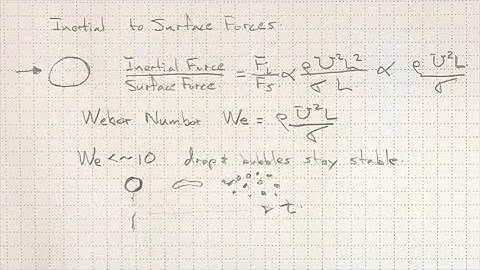 Inertial to Surface Forces.
Inertial Force / Surface Force = F_i / F_s ∝ ρ U²L² / σ L ∝ ρ U²L / σ
Weber Number We = ρ U²L / σ
We <~10 drops & bubbles stay stable.
t